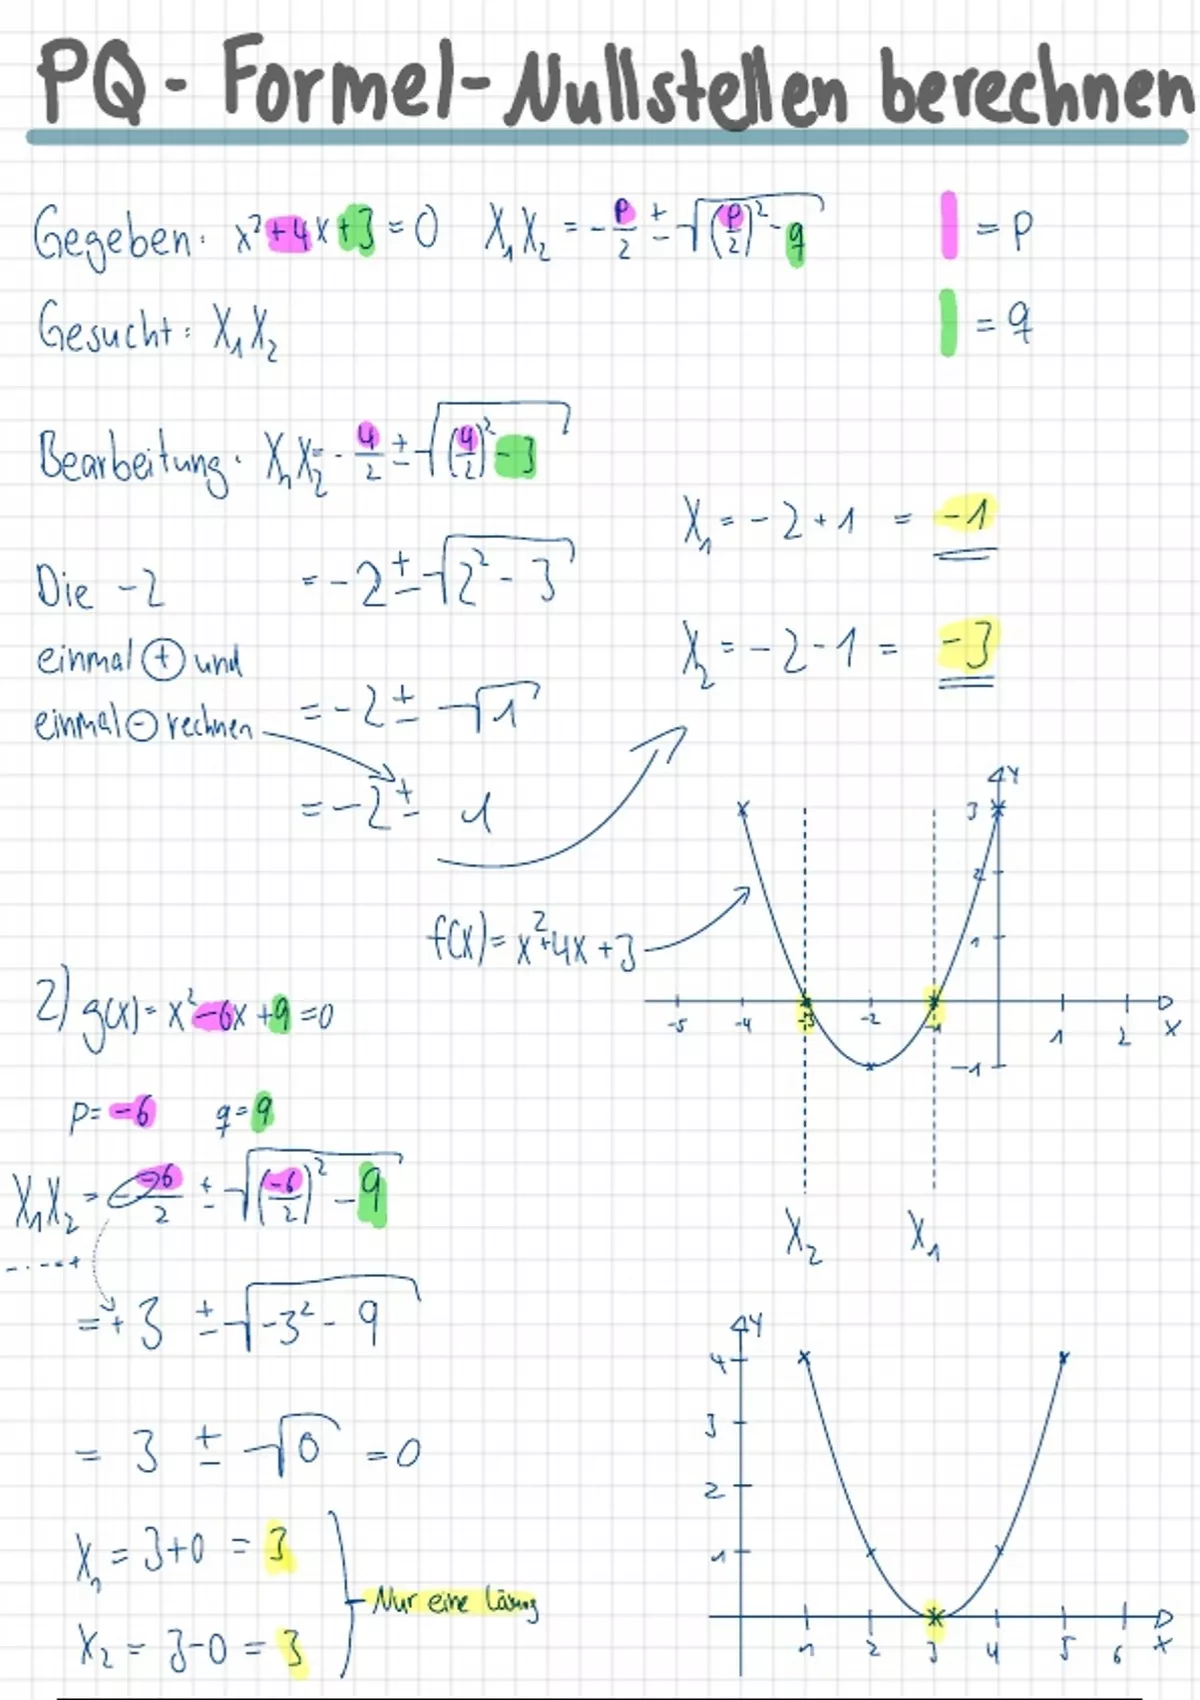 PQ - Formel - Nullstellen berechnen
Gegeben: x²+4x+3=0 X₁X₂ = -p/2 ± √((p/2)² - q) = p
Gesucht: X₁X₂ = q
Bearbeitung: X₁X₂ = -4/2 ± √((4/2)² - 3)
X₁ = -2+1 = -1
Die -2 = -2 ± √(2² - 3)
einmal (+) und
X₂ = -2-1 = -3
einmal (-) rechnen = -2 ± √1
= -2 ± 1
f(x) = x²+4x+3
Y
3
2
1
-5 -4 -3 -2 -1 1 2 X
-1
X₂ X₁
2) g(x) = x²-6x+9=0
p = -6 q = 9
X₁X₂ = - -6/2 ± √((-6/2)² - 9)
- · - = +
= +3 ± √(-3² - 9)
= 3 ± √0 = 0
X₁ = 3+0 = 3
Nur eine Lösung
X₂ = 3-0 = 3
Y
4
3
2
1
1 2 3 4 5 6 X